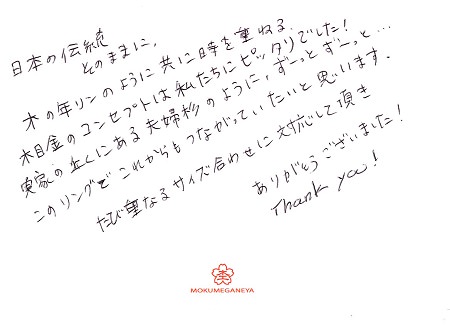 日本の伝統
そのままに、
木の年リンのように共に時を重ねる。
木目金のコンセプトは私たちにピッタリでした！
実家の近くにある夫婦杉のように、ずーっとずーっと…
このリングでこれからもつながっていたいと思います。
たび重なるサイズ合わせに対応して頂き
ありがとうございました！
Thank you!
MOKUMEGANEYA